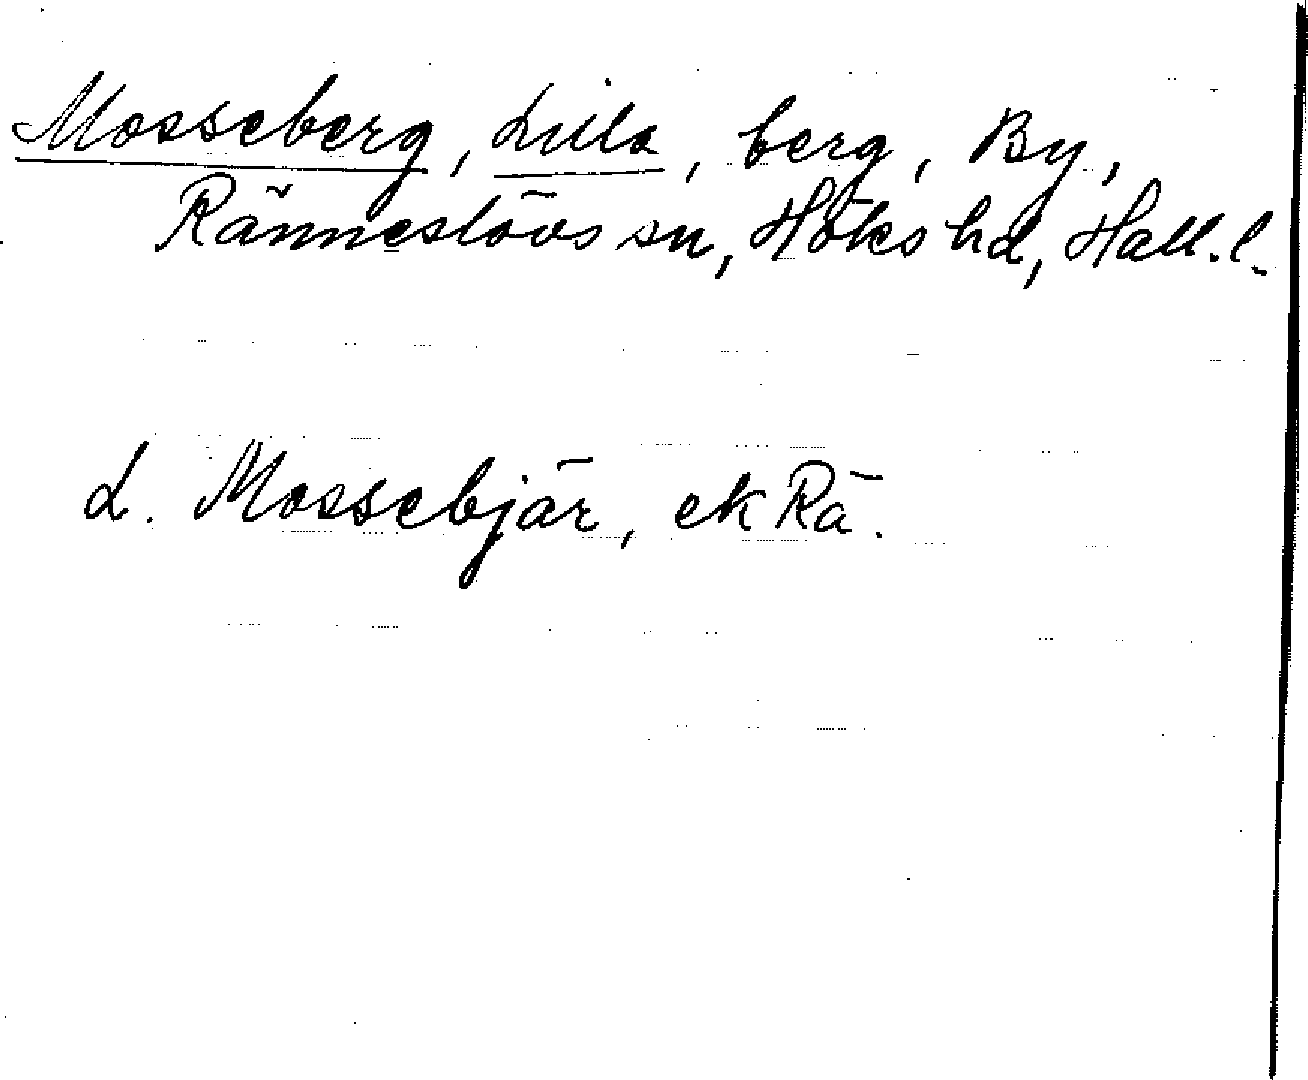 Mosseberg, Lilla, berg, By,
Ränneslövs sn, Höks hd, Hall. l.
L. Mossebjär, ek Rä.